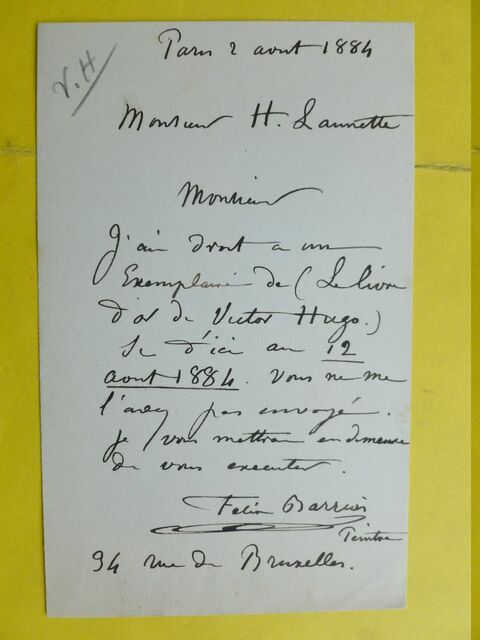 V.H
Paris 2 aout 1884
Monsieur H. Launette
Monsieur
J'ai droit a un
Exemplaire de (Le livre
d'or de Victor Hugo.)
Si d'ici au 12
aout 1884. Vous ne me
l'avez pas envoyé.
je vous mettrai en demeure
de vous executer.
Felix Barrias
Peintre
34 rue de Bruxelles.